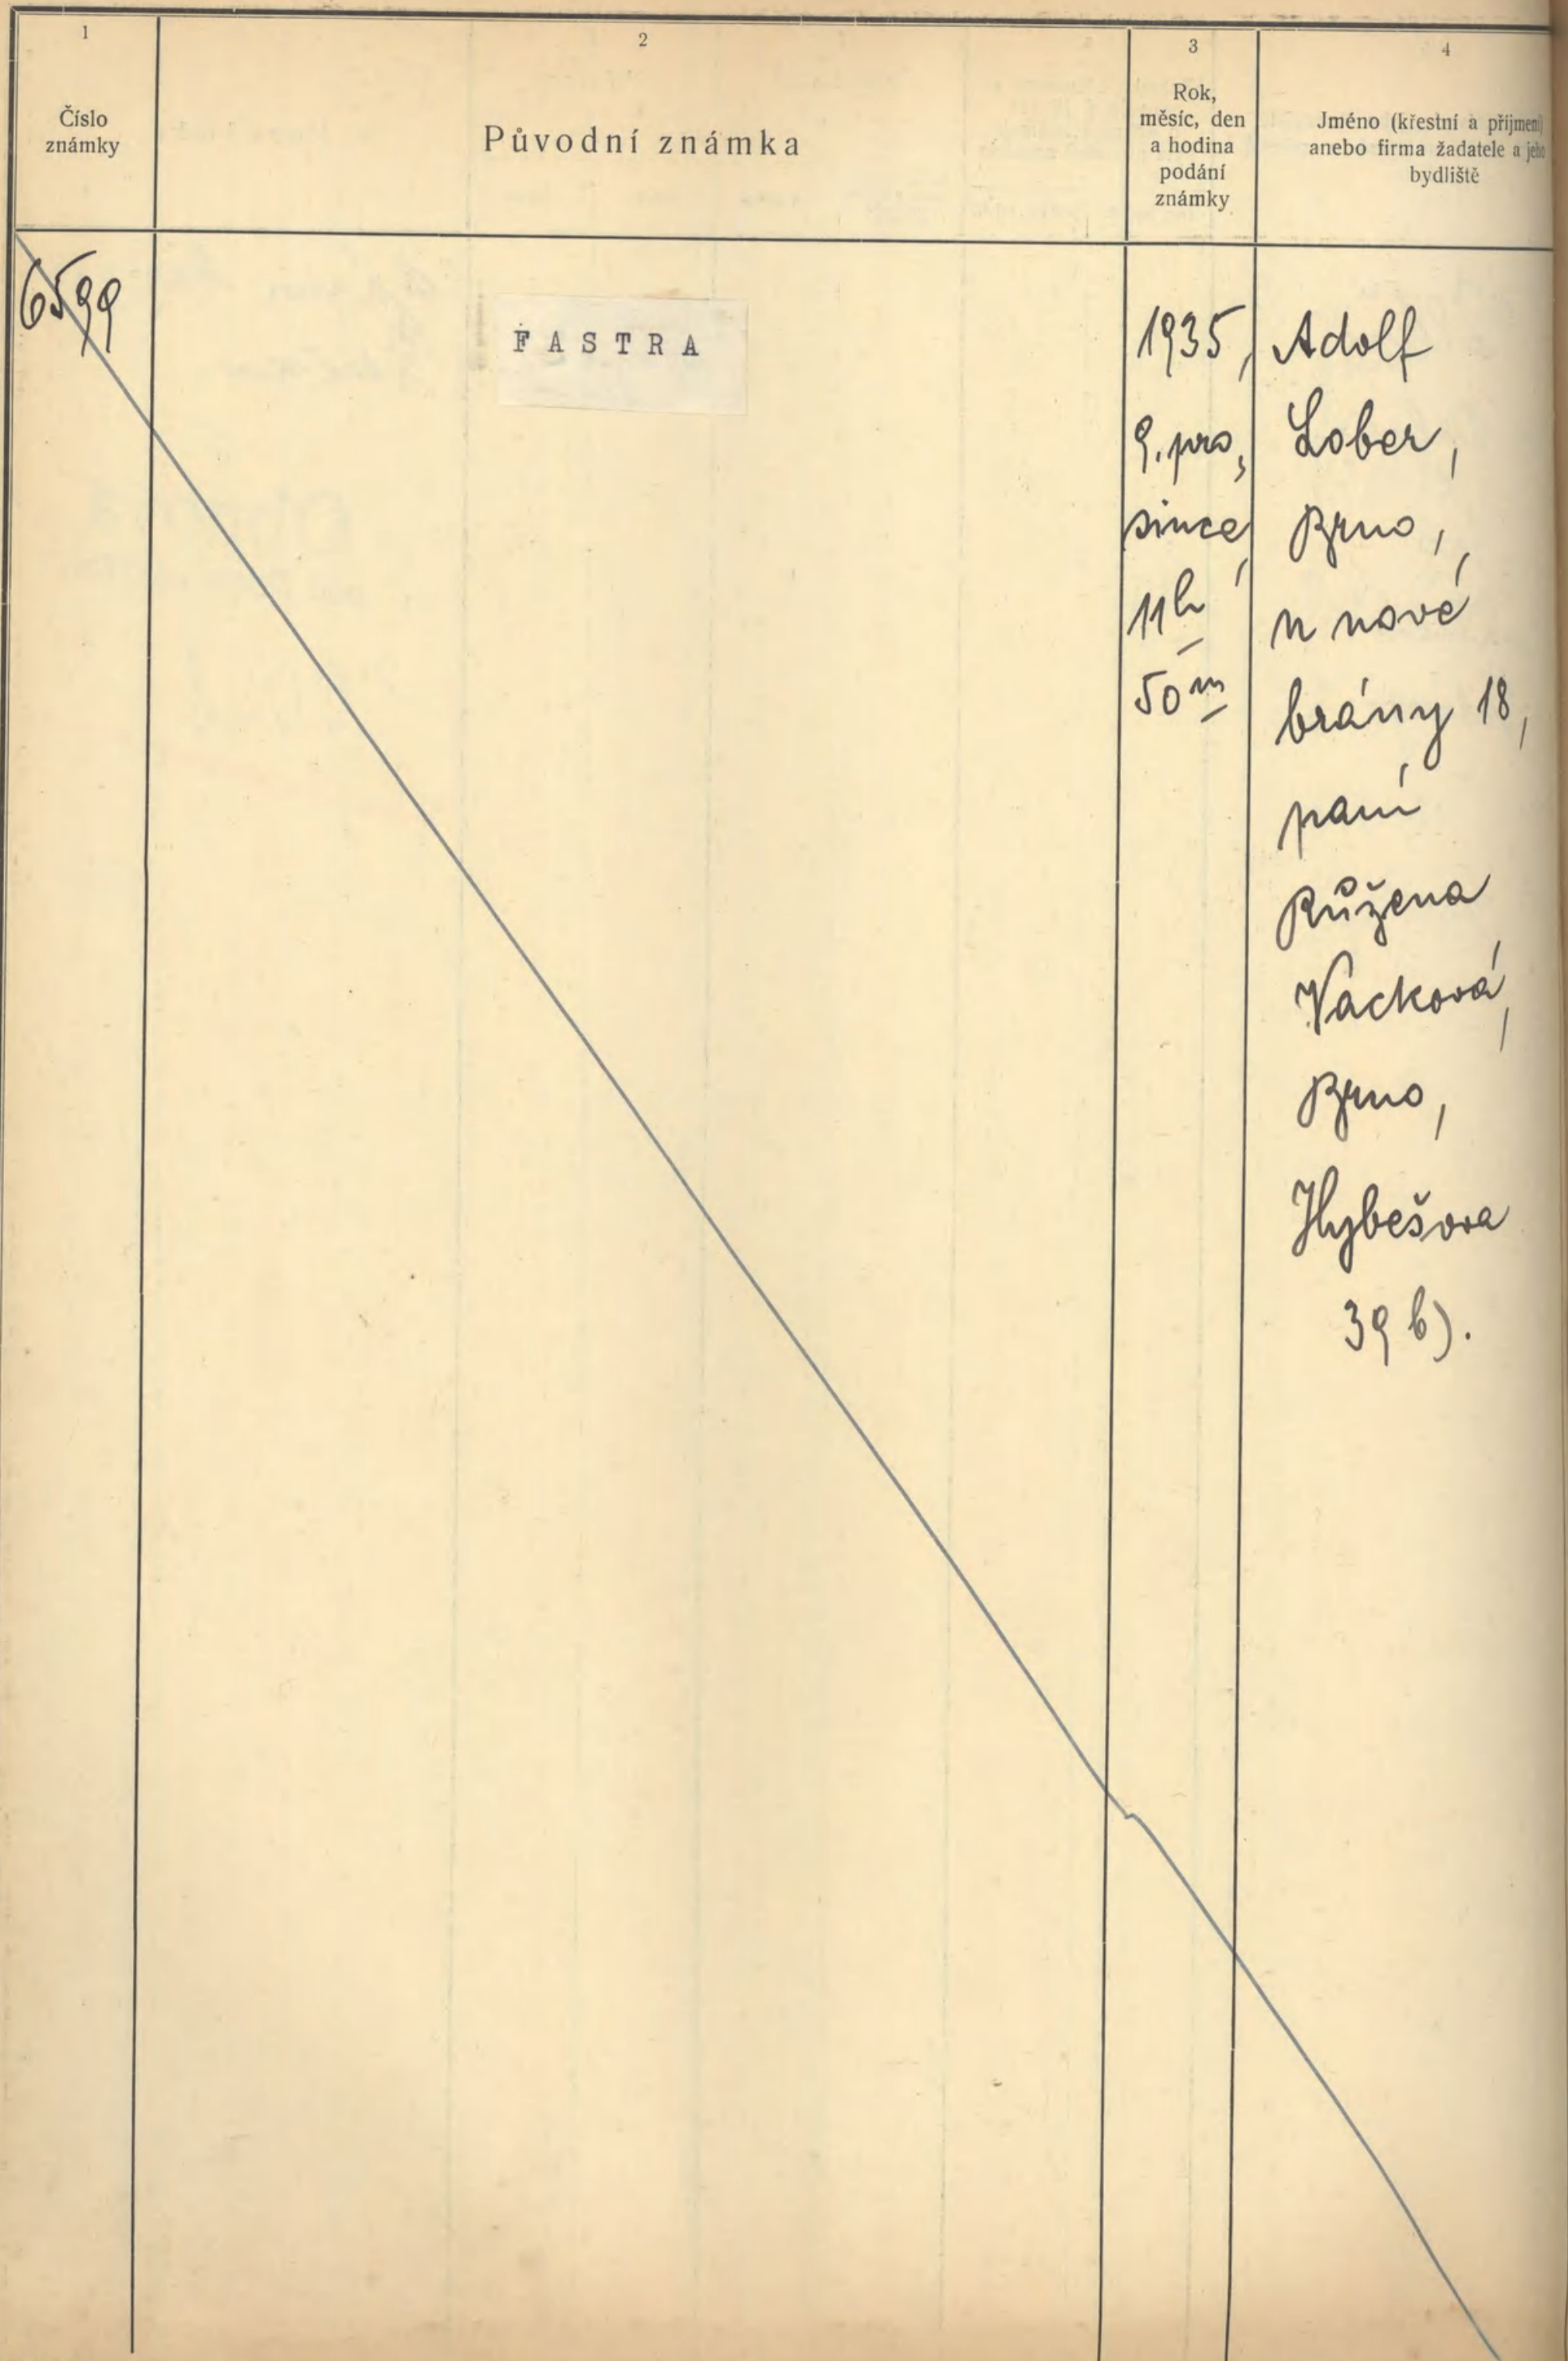 1
Číslo
známky
2
Původní známka
3
Rok,
měsíc, den
a hodina
podání
známky
4
Jméno (křestní a příjmení)
anebo firma žadatele a jeho
bydliště
6599
FASTRA
1935,
9. pro,
since,
11h
50m
Adolf
Lober,
Brno,
u nové
brány 18,
paní
Růžena
Vacková,
Brno,
Hybešova
39 b).